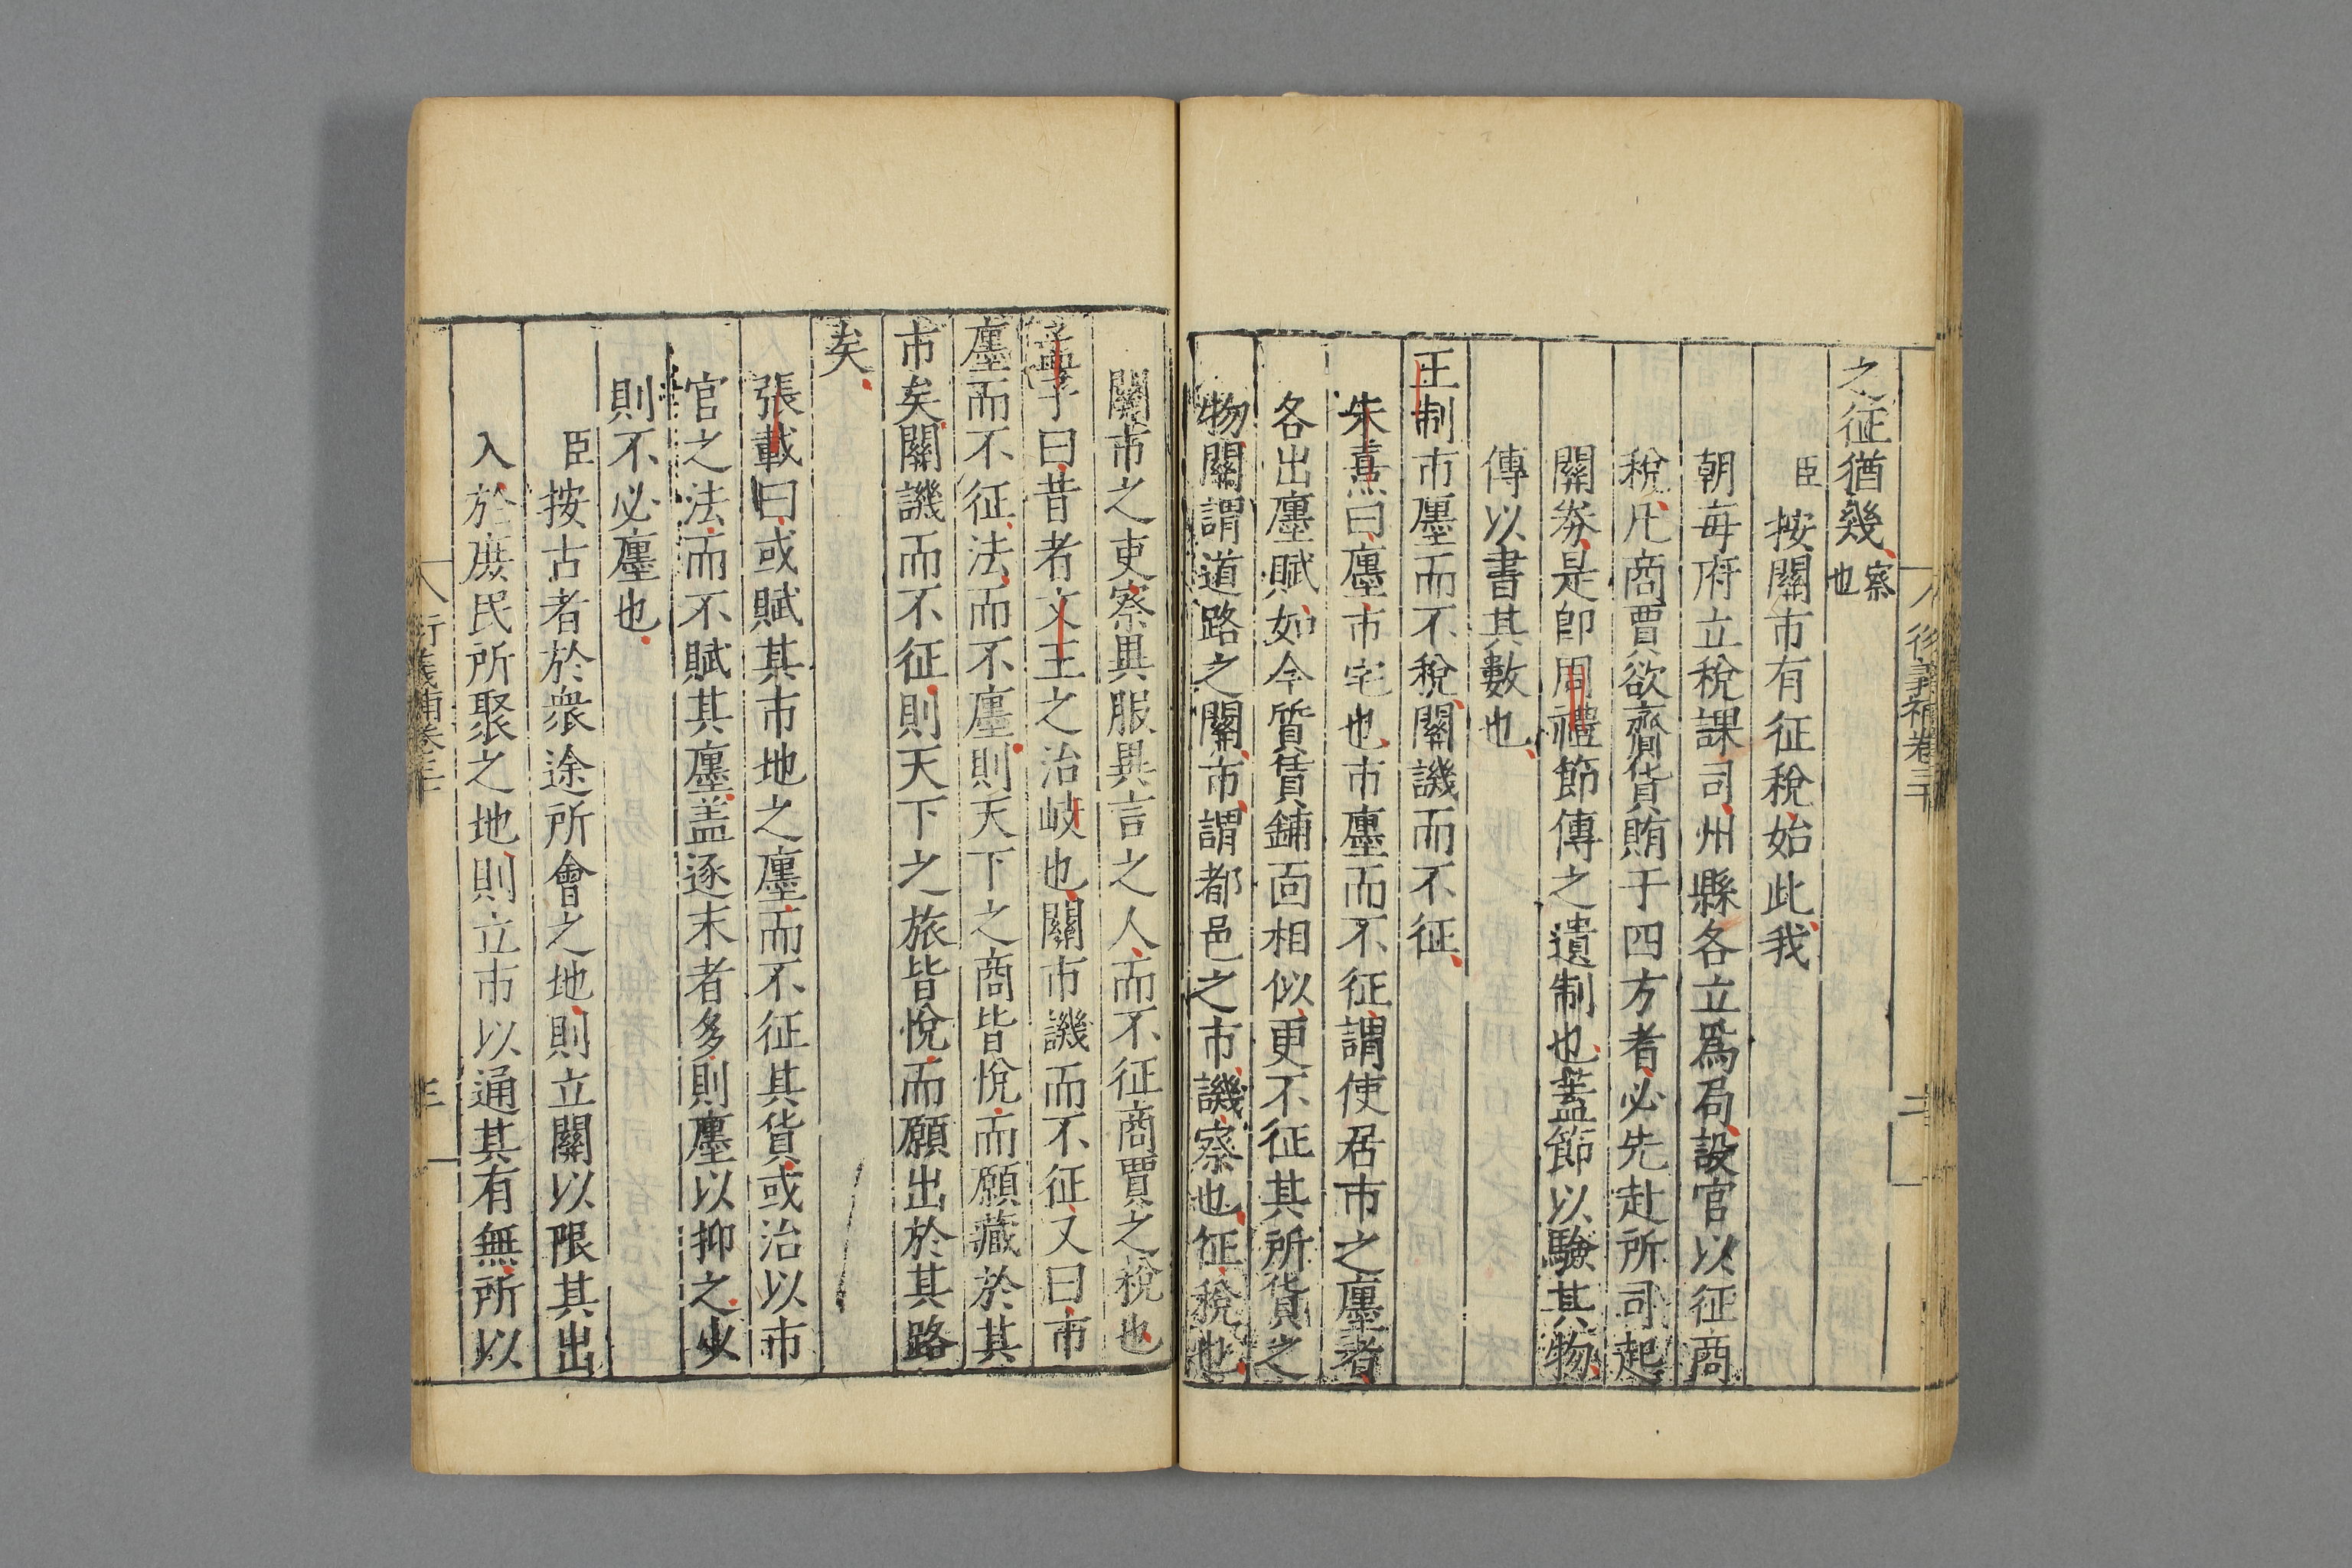 後義補卷三十
二
之征猶幾察也
臣按關市有征稅始此我
朝每府立稅課司州縣各立爲局設官以征商
稅凡商賈欲齎貨賄于四方者必先赴所司起
關劵是卽周禮節傳之遺制也蓋節以驗其物
傳以書其數也
王制市廛而不稅關譏而不征
朱熹曰廛市宅也市廛而不征謂使居市之廛者
各出廛賦如今質賃鋪面相似更不征其所貨之
物關謂道路之關市謂都邑之市譏察也征稅也
關市之吏察異服異言之人而不征商賈之稅也
孟子曰昔者文王之治岐也關市譏而不征又曰市
廛而不征法而不廛則天下之商皆悅而願藏於其
市矣關譏而不征則天下之旅皆悅而願出於其路
矣
張載曰或賦其市地之廛而不征其貨或治以市
官之法而不賦其廛盖逐末者多則廛以抑之少
則不必廛也
臣按古者於衆途所會之地則立關以限其出
入於庶民所聚之地則立市以通其有無所以
衍義補卷三十
三